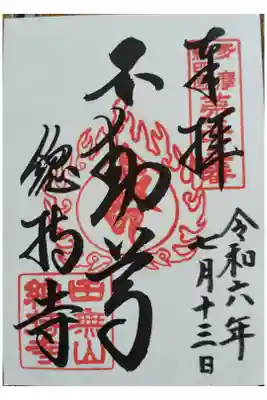 奉拝
令和六年
七月十三日
不動尊
総持寺